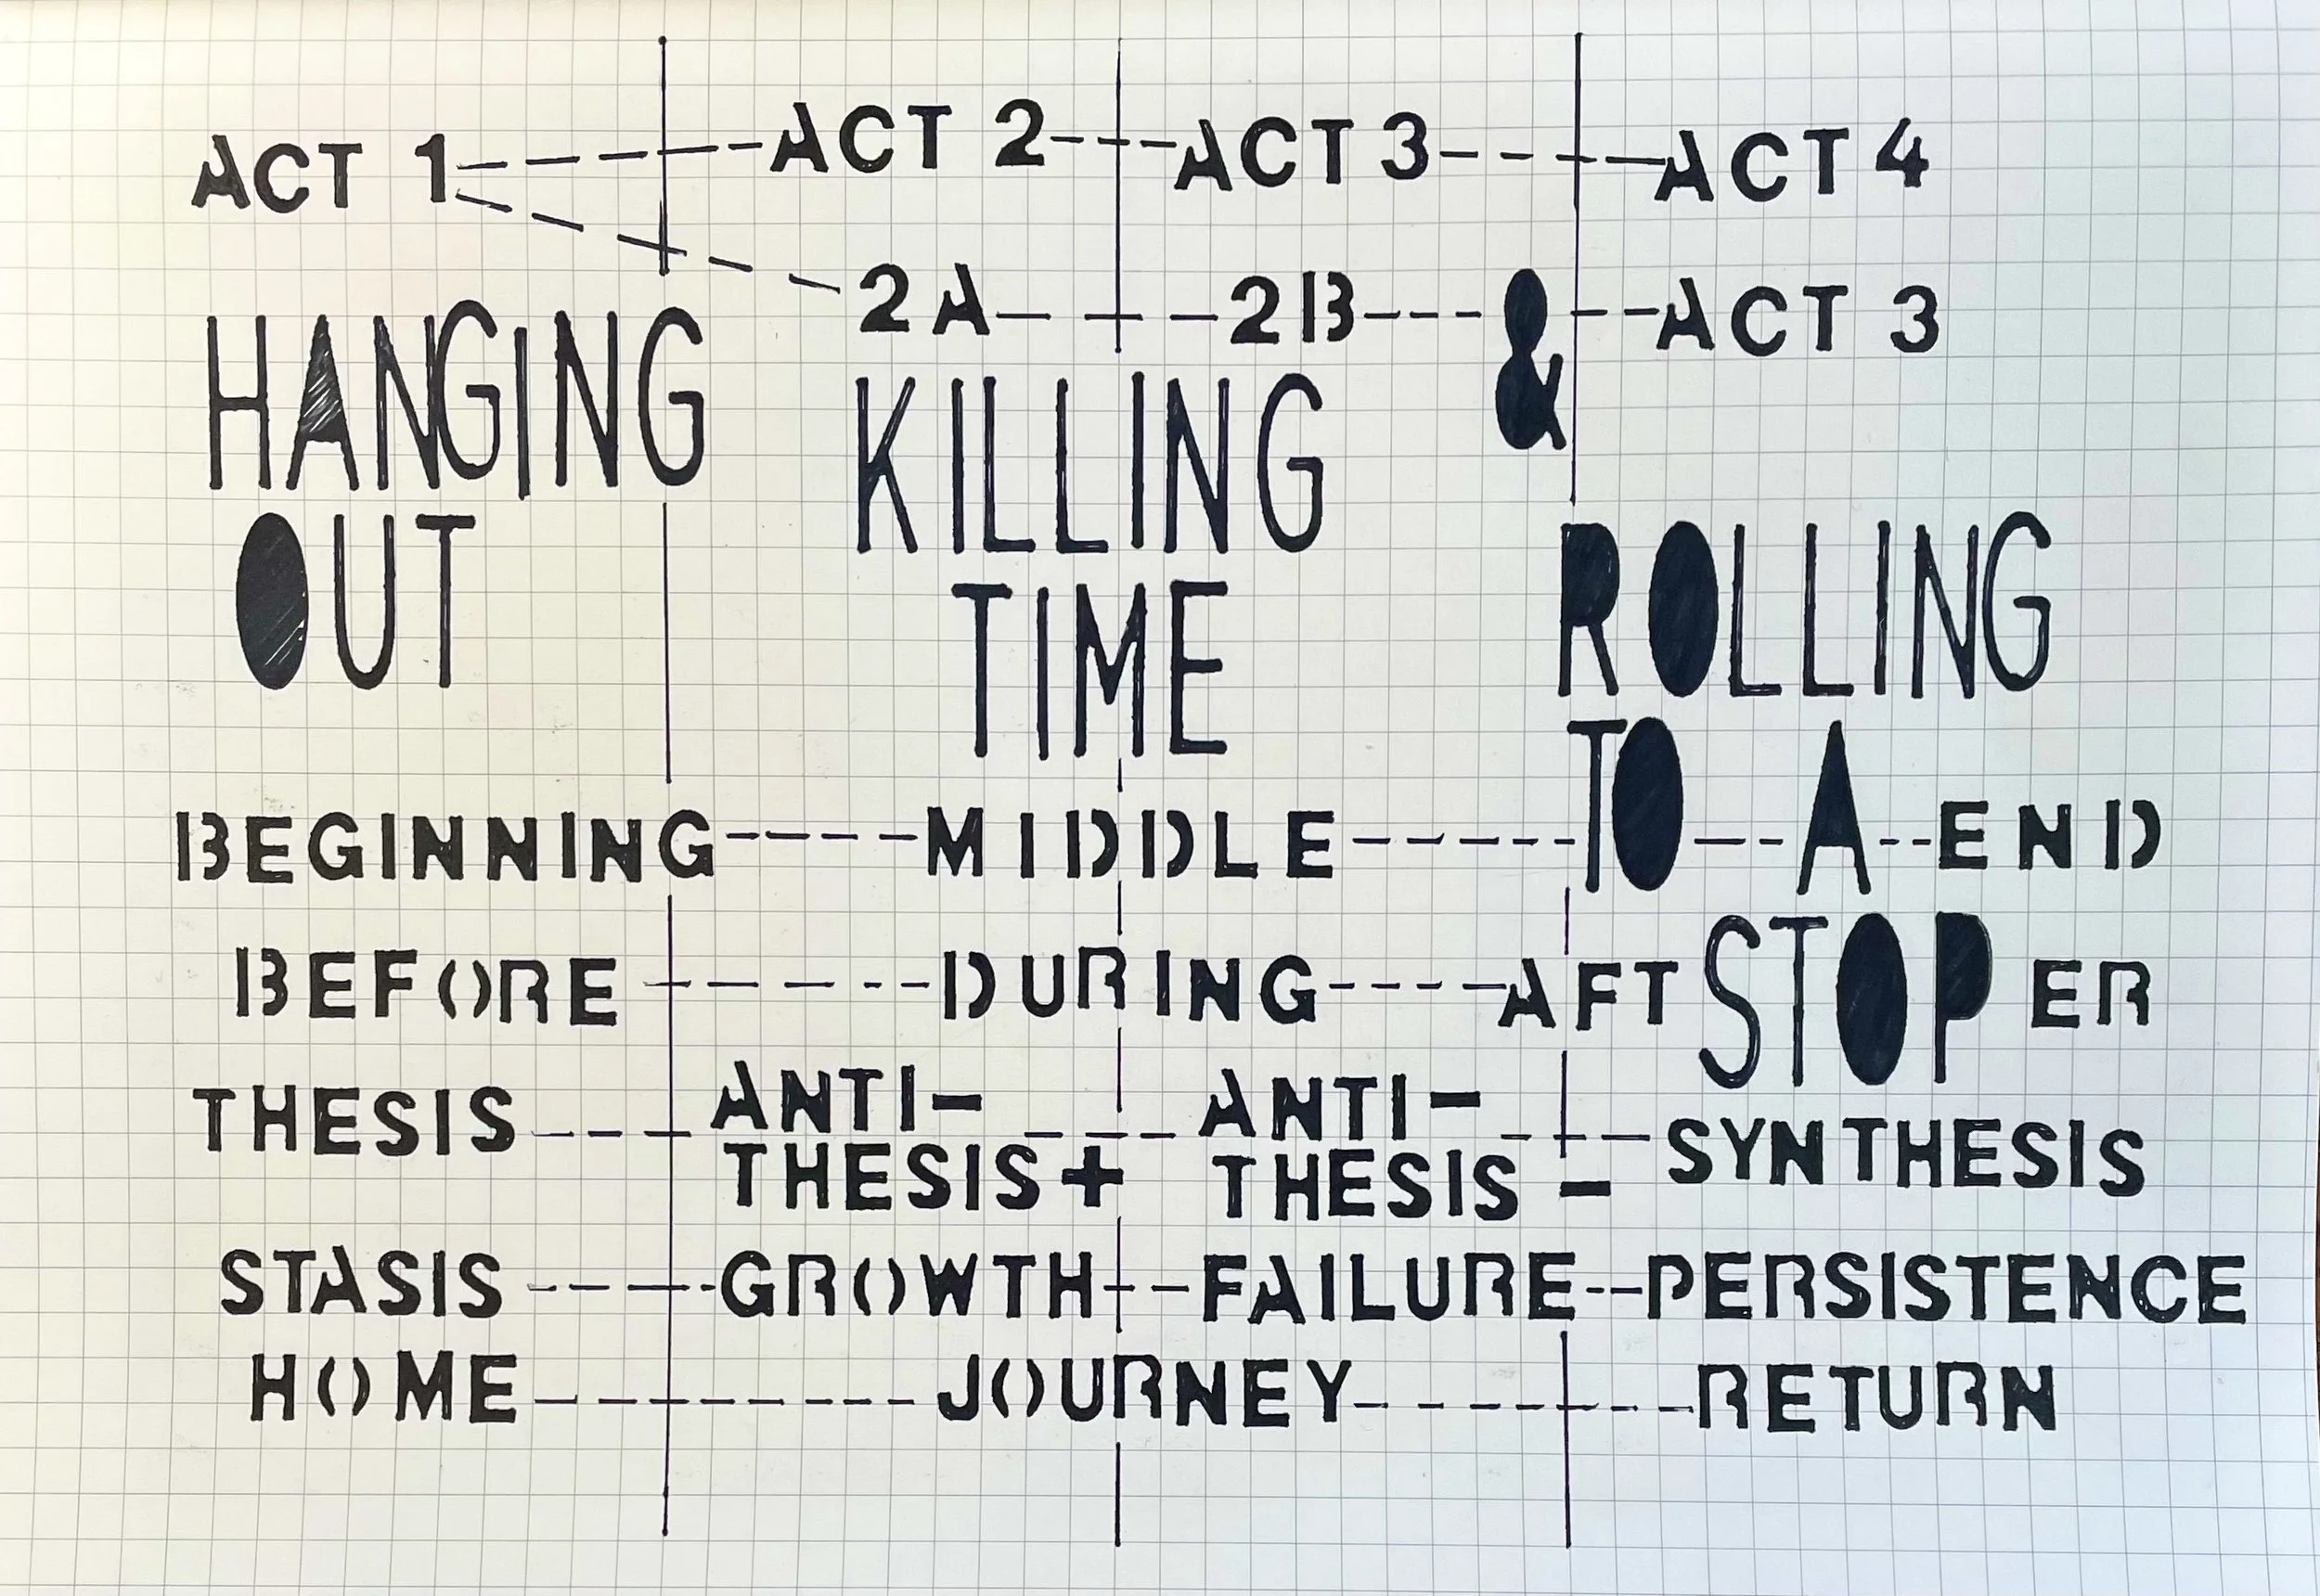 ACT 1 ACT 2 ACT 3 ACT 4
2A 2B & ACT 3
HANGING
KILLING
OUT
ROLLING
TIME
TO A
BEGINNING MIDDLE END
STOP
BEFORE DURING AFTER
THESIS ANTI-THESIS+ ANTI-THESIS- SYNTHESIS
STASIS GROWTH FAILURE PERSISTENCE
HOME JOURNEY RETURN